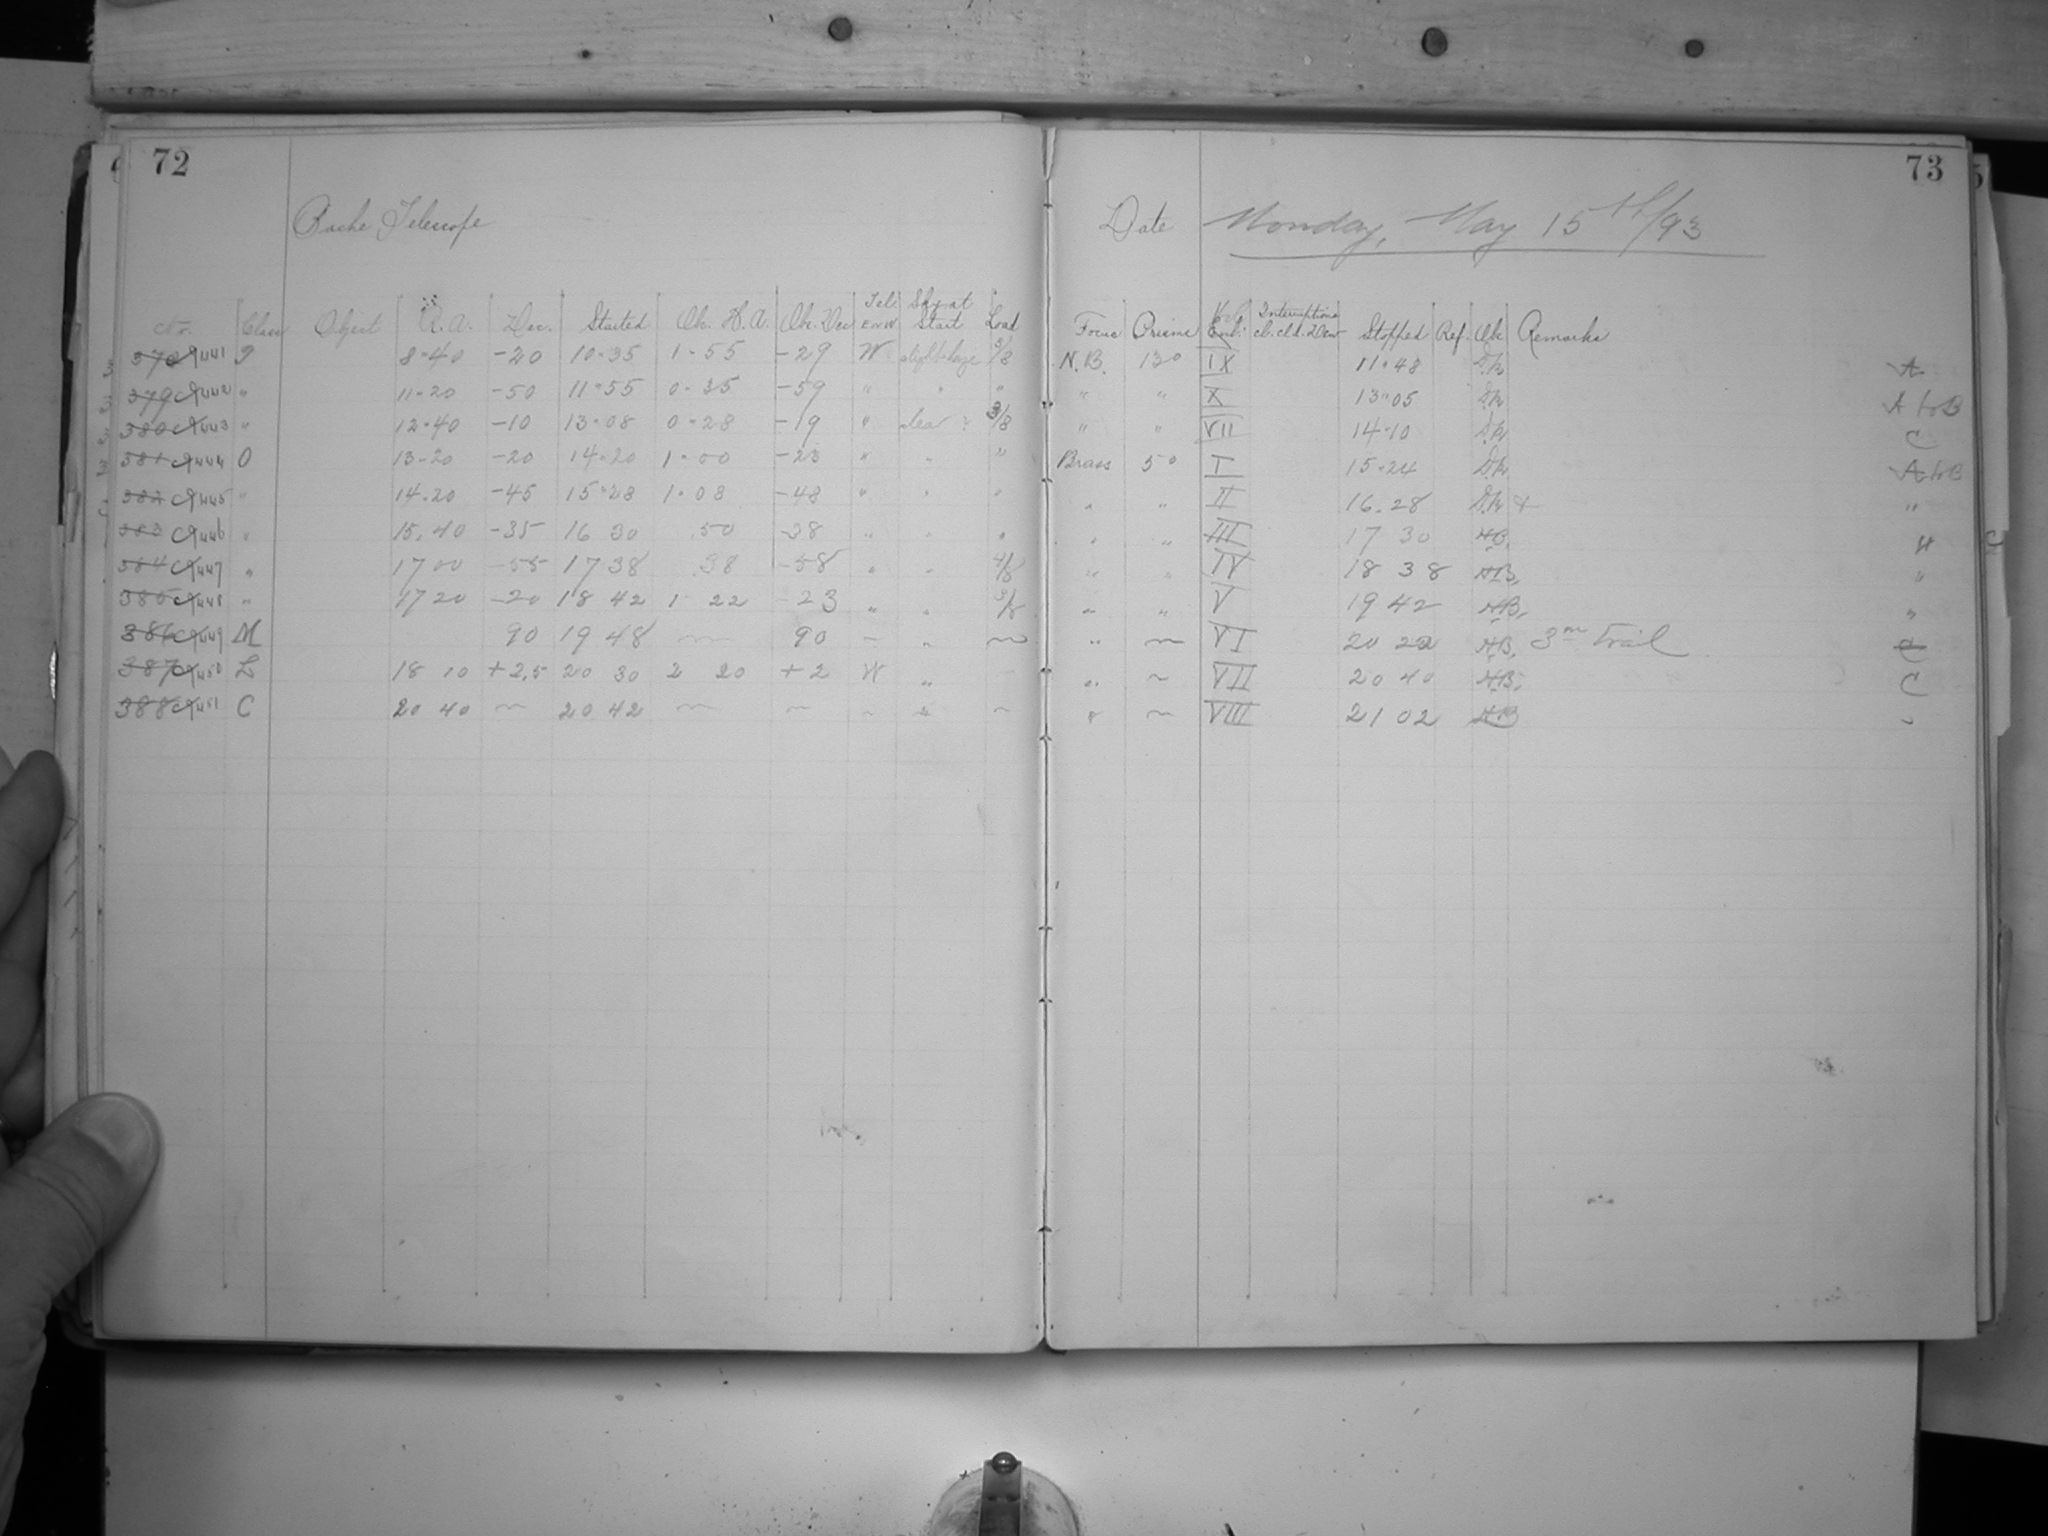 72
Bache Telescope
No. Class Object R.A. Dec. Started Ob. H.A. Ob. Dec Tel. E or W Sky at Start Load
9441 8-40 -20 10-35 1-55 -29 W slight haze
379 9442 " 11-20 -50 11-55 0-35 -59 " " "
380 9443 " 12-40 -10 13-08 0-28 -19 " clear 3/8
381 9444 O 13-20 -20 14-20 1-00 -23 " " "
382 9445 " 14-20 -45 15-28 1-08 -48 " " "
383 9446 " 15.40 -35 16 30 .50 -38 " " "
384 9447 " 17 00 -55 17 38 .38 -58 " " 4/8
385 9448 " 17 20 -20 18 42 1 22 -23 " "
386 9449 M 90 19 48 — 90 — " —
387 9450 L 18 10 +2.5 20 30 2 20 +2 W " —
388 9451 C 20 40 — 20 42 — — — " —
73
Date Monday, May 15th/93
Focus Prisms End. Interruptions cl. cld. Dew Stopped Ref. Ob. Remarks
N.B. 13° IX 11-48 A
" " X 13-05 A to B
" " VII 14-10 C
Brass 5° I 15-24 A to B
" " II 16.28 "
" " III 17 30 H.B. "
" " IV 18 38 H.B. "
" " V 19 42 H.B. "
" — VI 20 22 H.B. 3m trail C
" — VII 20 40 H.B. C
" — VIII 21 02 H.B